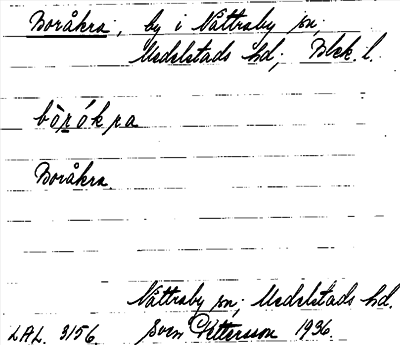 Boråkra, by i Nättraby sn;
Medelstads hd; Blek. l.
bòrókra
Boråkra.
Nättraby sn; Medelstads hd.
LAL. 3156. Sven Pettersson 1936.